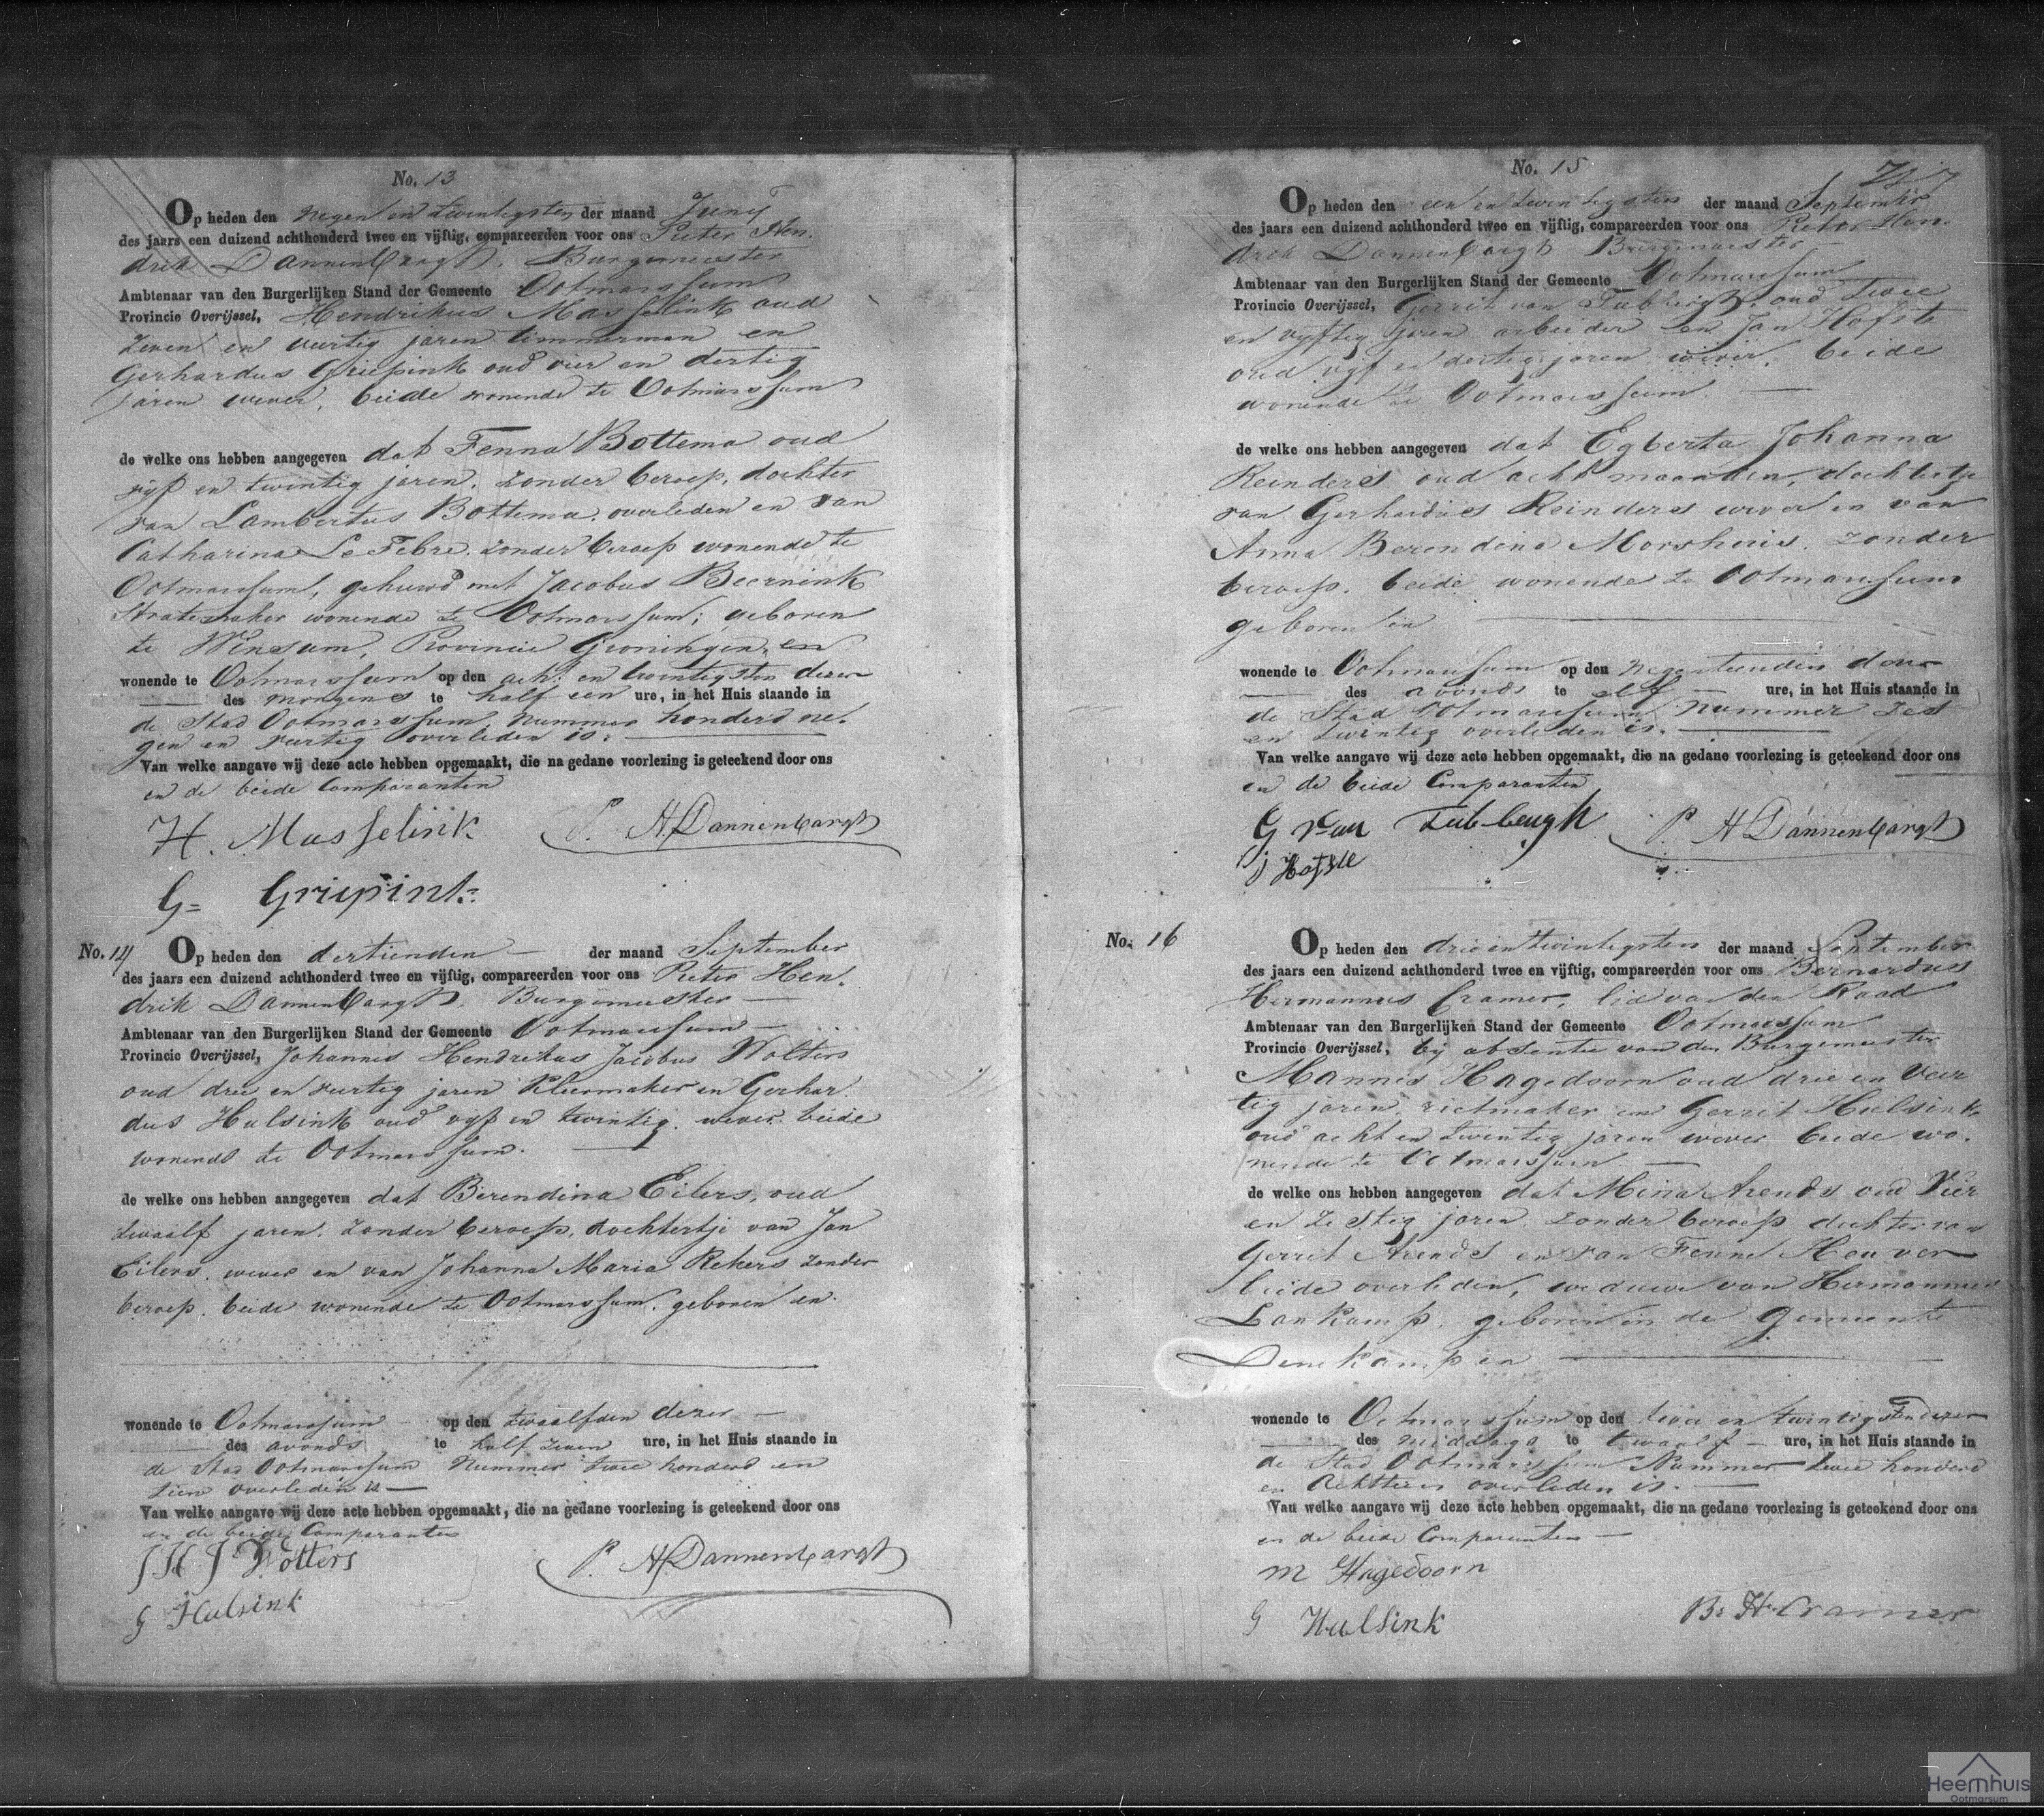 No. 13
Op heden den negen en twintigsten der maand Juny
des jaars een duizend achthonderd twee en vijftig, compareerden voor ons Pieter Hen-
drik Dannenbargh, Burgemeester
Ambtenaar van den Burgerlijken Stand der Gemeente Ootmarssum
Provincie Overijssel, Hendrikus Masselink oud
zeven en veertig jaren timmerman en
Gerhardus Griepink oud vier en dertig
jaren wever, beide wonende te Ootmarssum
de welke ons hebben aangegeven dat Fenna Bottema oud
vyf en twintig jaren, zonder beroep, dochter
van Lambertus Bottema, overleden en van
Catharina Le Febre, zonder beroep wonende te
Ootmarssum, gehuwd met Jacobus Beernink
Stratemaker wonende te Ootmarssum; geboren
te Winsum, Provincie Groningen, en
wonende te Ootmarssum op den acht en twintigsten dezer
des morgens te half een ure, in het Huis staande in
de Stad Ootmarssum, nummer honderd ne-
gen en veertig overleden is.
Van welke aangave wij deze acte hebben opgemaakt, die na gedane voorlezing is geteekend door ons
en de beide Comparanten
H. Masselink P. H Dannenbargh
G= Griepink
No. 14 Op heden den dertienden der maand September
des jaars een duizend achthonderd twee en vijftig, compareerden voor ons Pieter Hen-
drik Dannenbargh, Burgemeester
Ambtenaar van den Burgerlijken Stand der Gemeente Ootmarssum
Provincie Overijssel, Johannes Hendrikus Jacobus Wolters
oud drie en veertig jaren Kleermaker en Gerhar-
dus Hulsink oud vyf en twintig, wever beide
wonende te Ootmarssum.
de welke ons hebben aangegeven dat Berendina Eilers, oud
twaalf jaren, zonder beroep, dochtertje van Jan
Eilers, wever en van Johanna Maria Rekers zonder
beroep, beide wonende te Ootmarssum, geboren en
wonende te Ootmarssum op den twaalfden dezer
des avonds te half zeven ure, in het Huis staande in
de Stad Ootmarssum Nummer twee honderd en
tien overleden is
Van welke aangave wij deze acte hebben opgemaakt, die na gedane voorlezing is geteekend door ons
en de beide Comparanten
J H J Wolters P. H Dannenbargh
G Hulsink
No. 15
Op heden den een en twintigsten der maand September
des jaars een duizend achthonderd twee en vijftig, compareerden voor ons Pieter Hen-
drik Dannenbargh Burgemeester
Ambtenaar van den Burgerlijken Stand der Gemeente Ootmarssum
Provincie Overijssel, Gerrit van Tubbergh, oud twee
en vyftig jaren arbeider en Jan Hofste
oud vyf en dertig jaren wever, beide
wonende te Ootmarssum
de welke ons hebben aangegeven dat Egberta Johanna
Reinders oud acht maanden, dochtertje
van Gerhardus Reinders wever en van
Anna Berendina Morshuis, zonder
beroep, beide wonende te Ootmarssum
geboren en
wonende te Ootmarssum op den negentienden dezer
des avonds te elf ure, in het Huis staande in
de Stad Ootmarssum nummer zes
en twintig overleden is.
Van welke aangave wij deze acte hebben opgemaakt, die na gedane voorlezing is geteekend door ons
en de beide Comparanten
G van Tubbergh P. H Dannenbargh
J Hofste
No. 16 Op heden den drie en twintigsten der maand September
des jaars een duizend achthonderd twee en vijftig, compareerden voor ons Bernardus
Hermannus Cramer, lid van den Raad
Ambtenaar van den Burgerlijken Stand der Gemeente Ootmarssum
Provincie Overijssel, by absentie van den Burgemeester
Mannes Hagedoorn oud drie en veer
tig jaren, rietmaker en Gerrit Hulsink
oud acht en twintig jaren wever beide wo-
nende te Ootmarssum
de welke ons hebben aangegeven dat Mina Arends oud vier
en zestig jaren zonder beroep dochter van
Gerrit Arends en van Fenne Heuver
beide overleden, weduwe van Hermannus
Lankamp, geboren in de Gemeente
Denekampen
wonende te Ootmarssum op den twee en twintigsten dezer
des middags te twaalf ure, in het Huis staande in
de Stad Ootmarssum Nummer twee honderd
en achttien overleden is.
Van welke aangave wij deze acte hebben opgemaakt, die na gedane voorlezing is geteekend door ons
en de beide Comparanten
M Hagedoorn
G Hulsink B: H. Cramer
Heemhuis
Ootmarsum